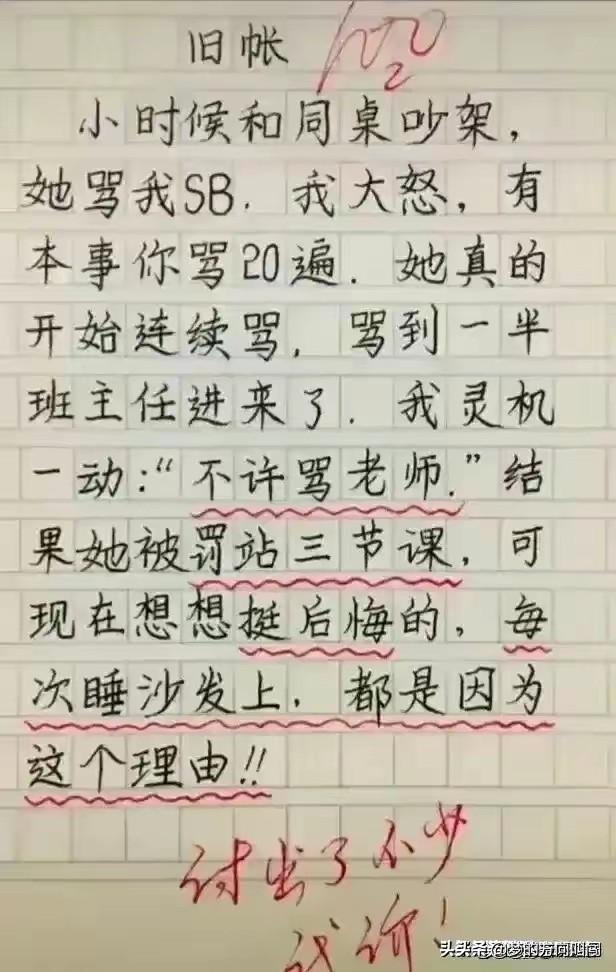 旧帐
100
小时候和同桌吵架，
她骂我SB．我大怒，有
本事你骂20遍．她真的
开始连续骂，骂到一半
班主任进来了．我灵机
一动：“不许骂老师．”结
果她被罚站三节课，可
现在想想挺后悔的，每
次睡沙发上，都是因为
这个理由!!
付出了不少
代价！